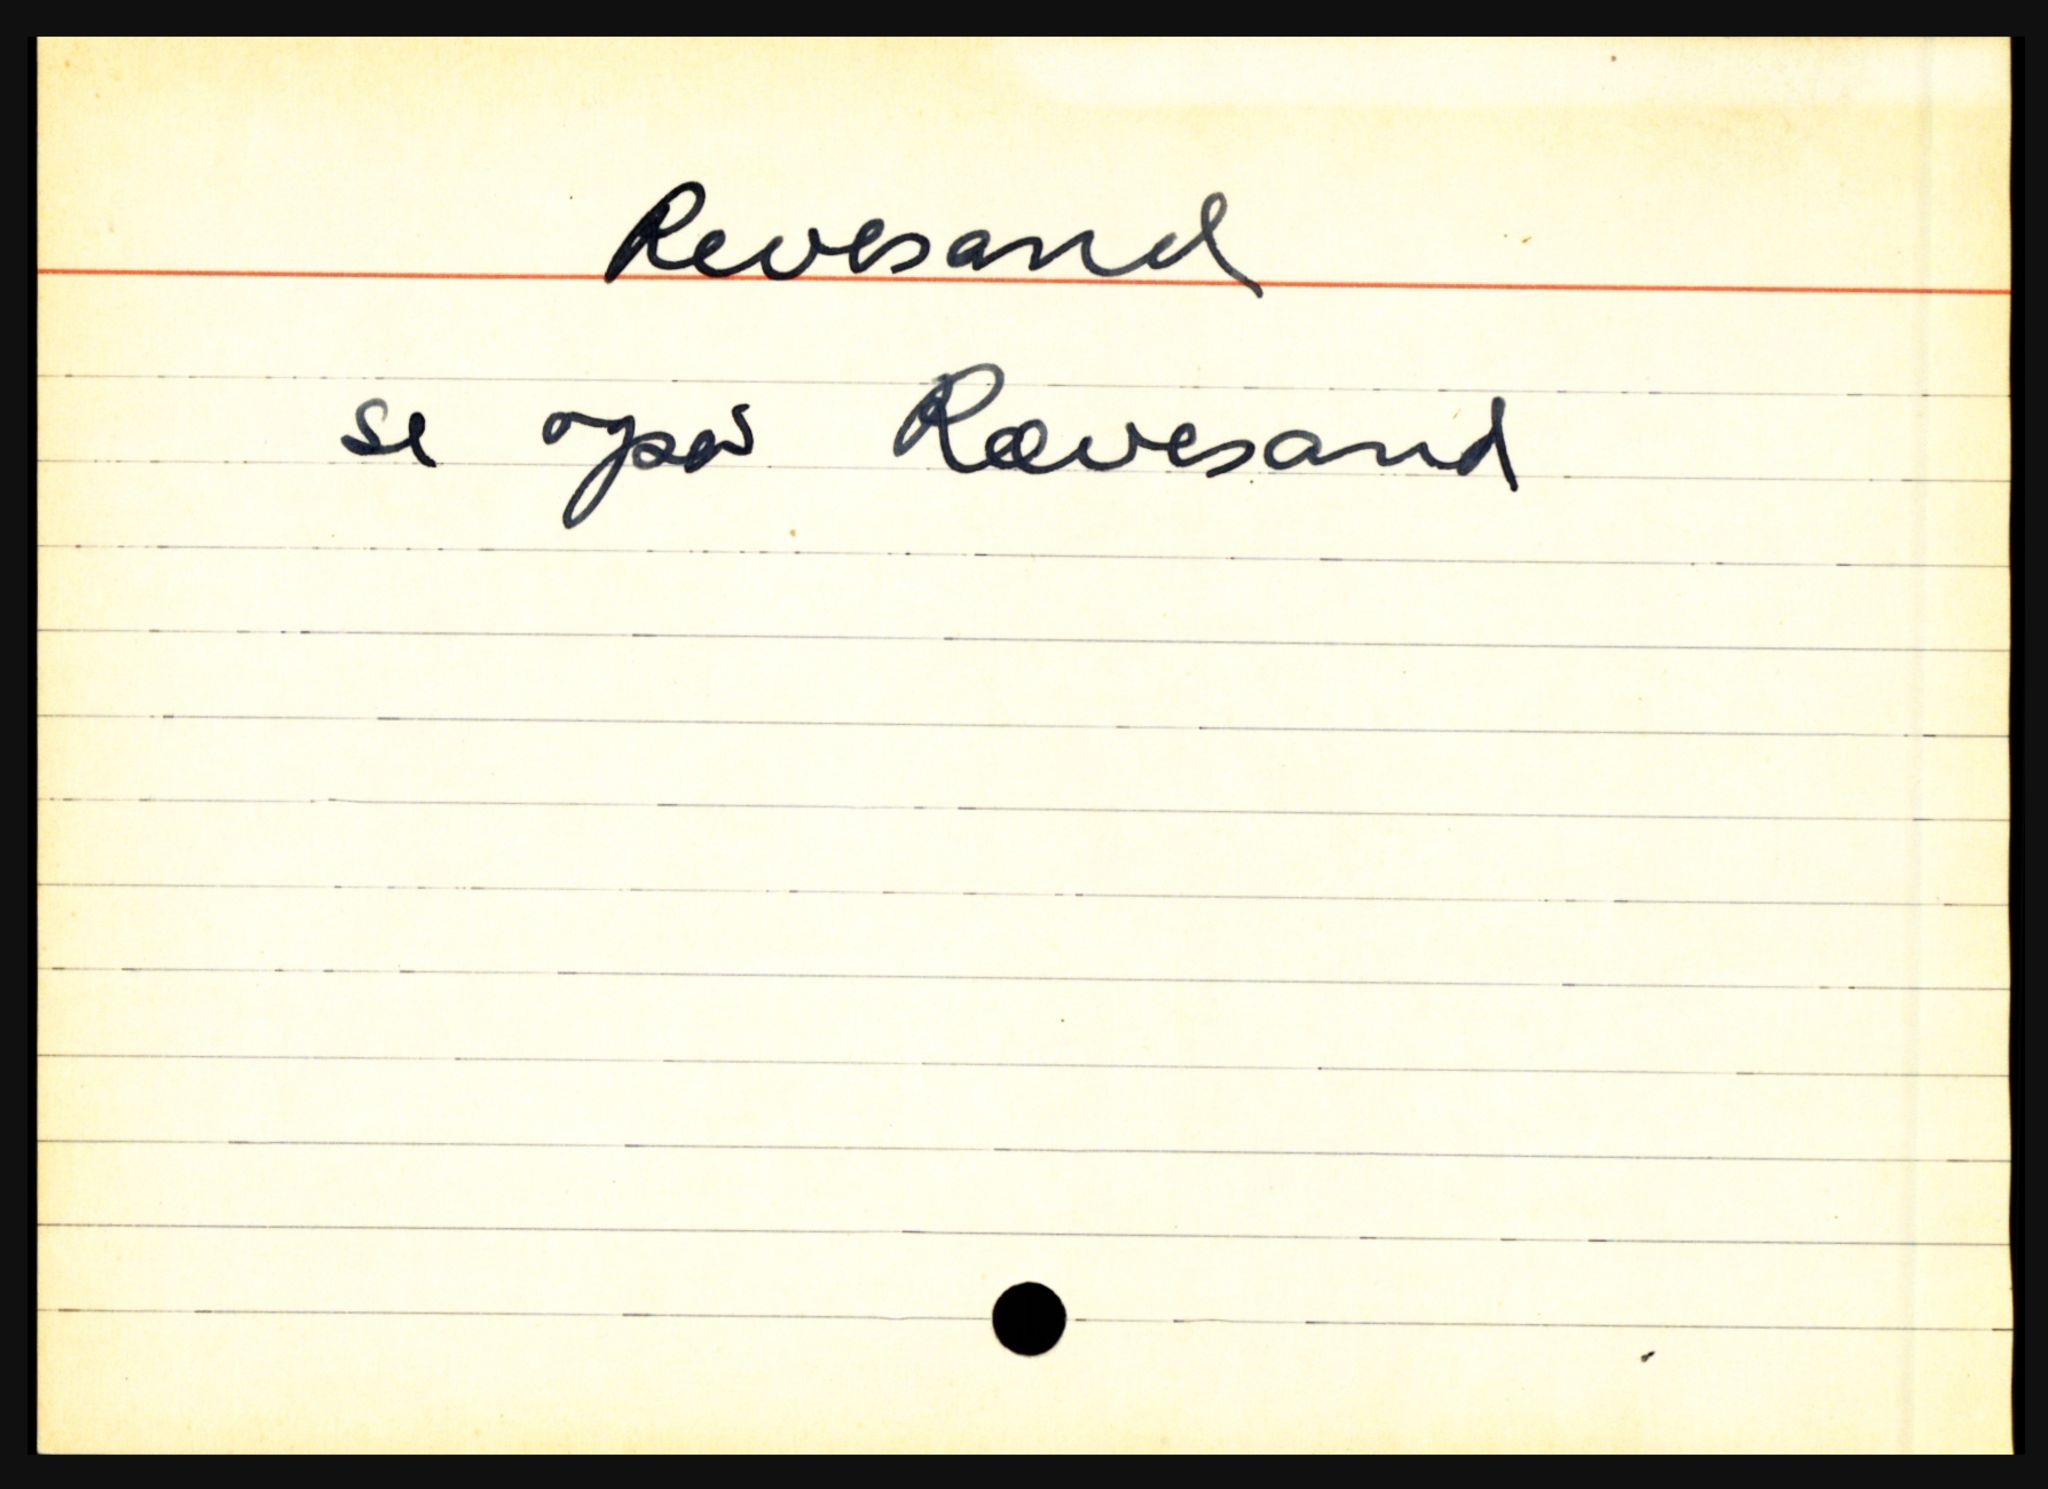 Revesand
se også Rævesand